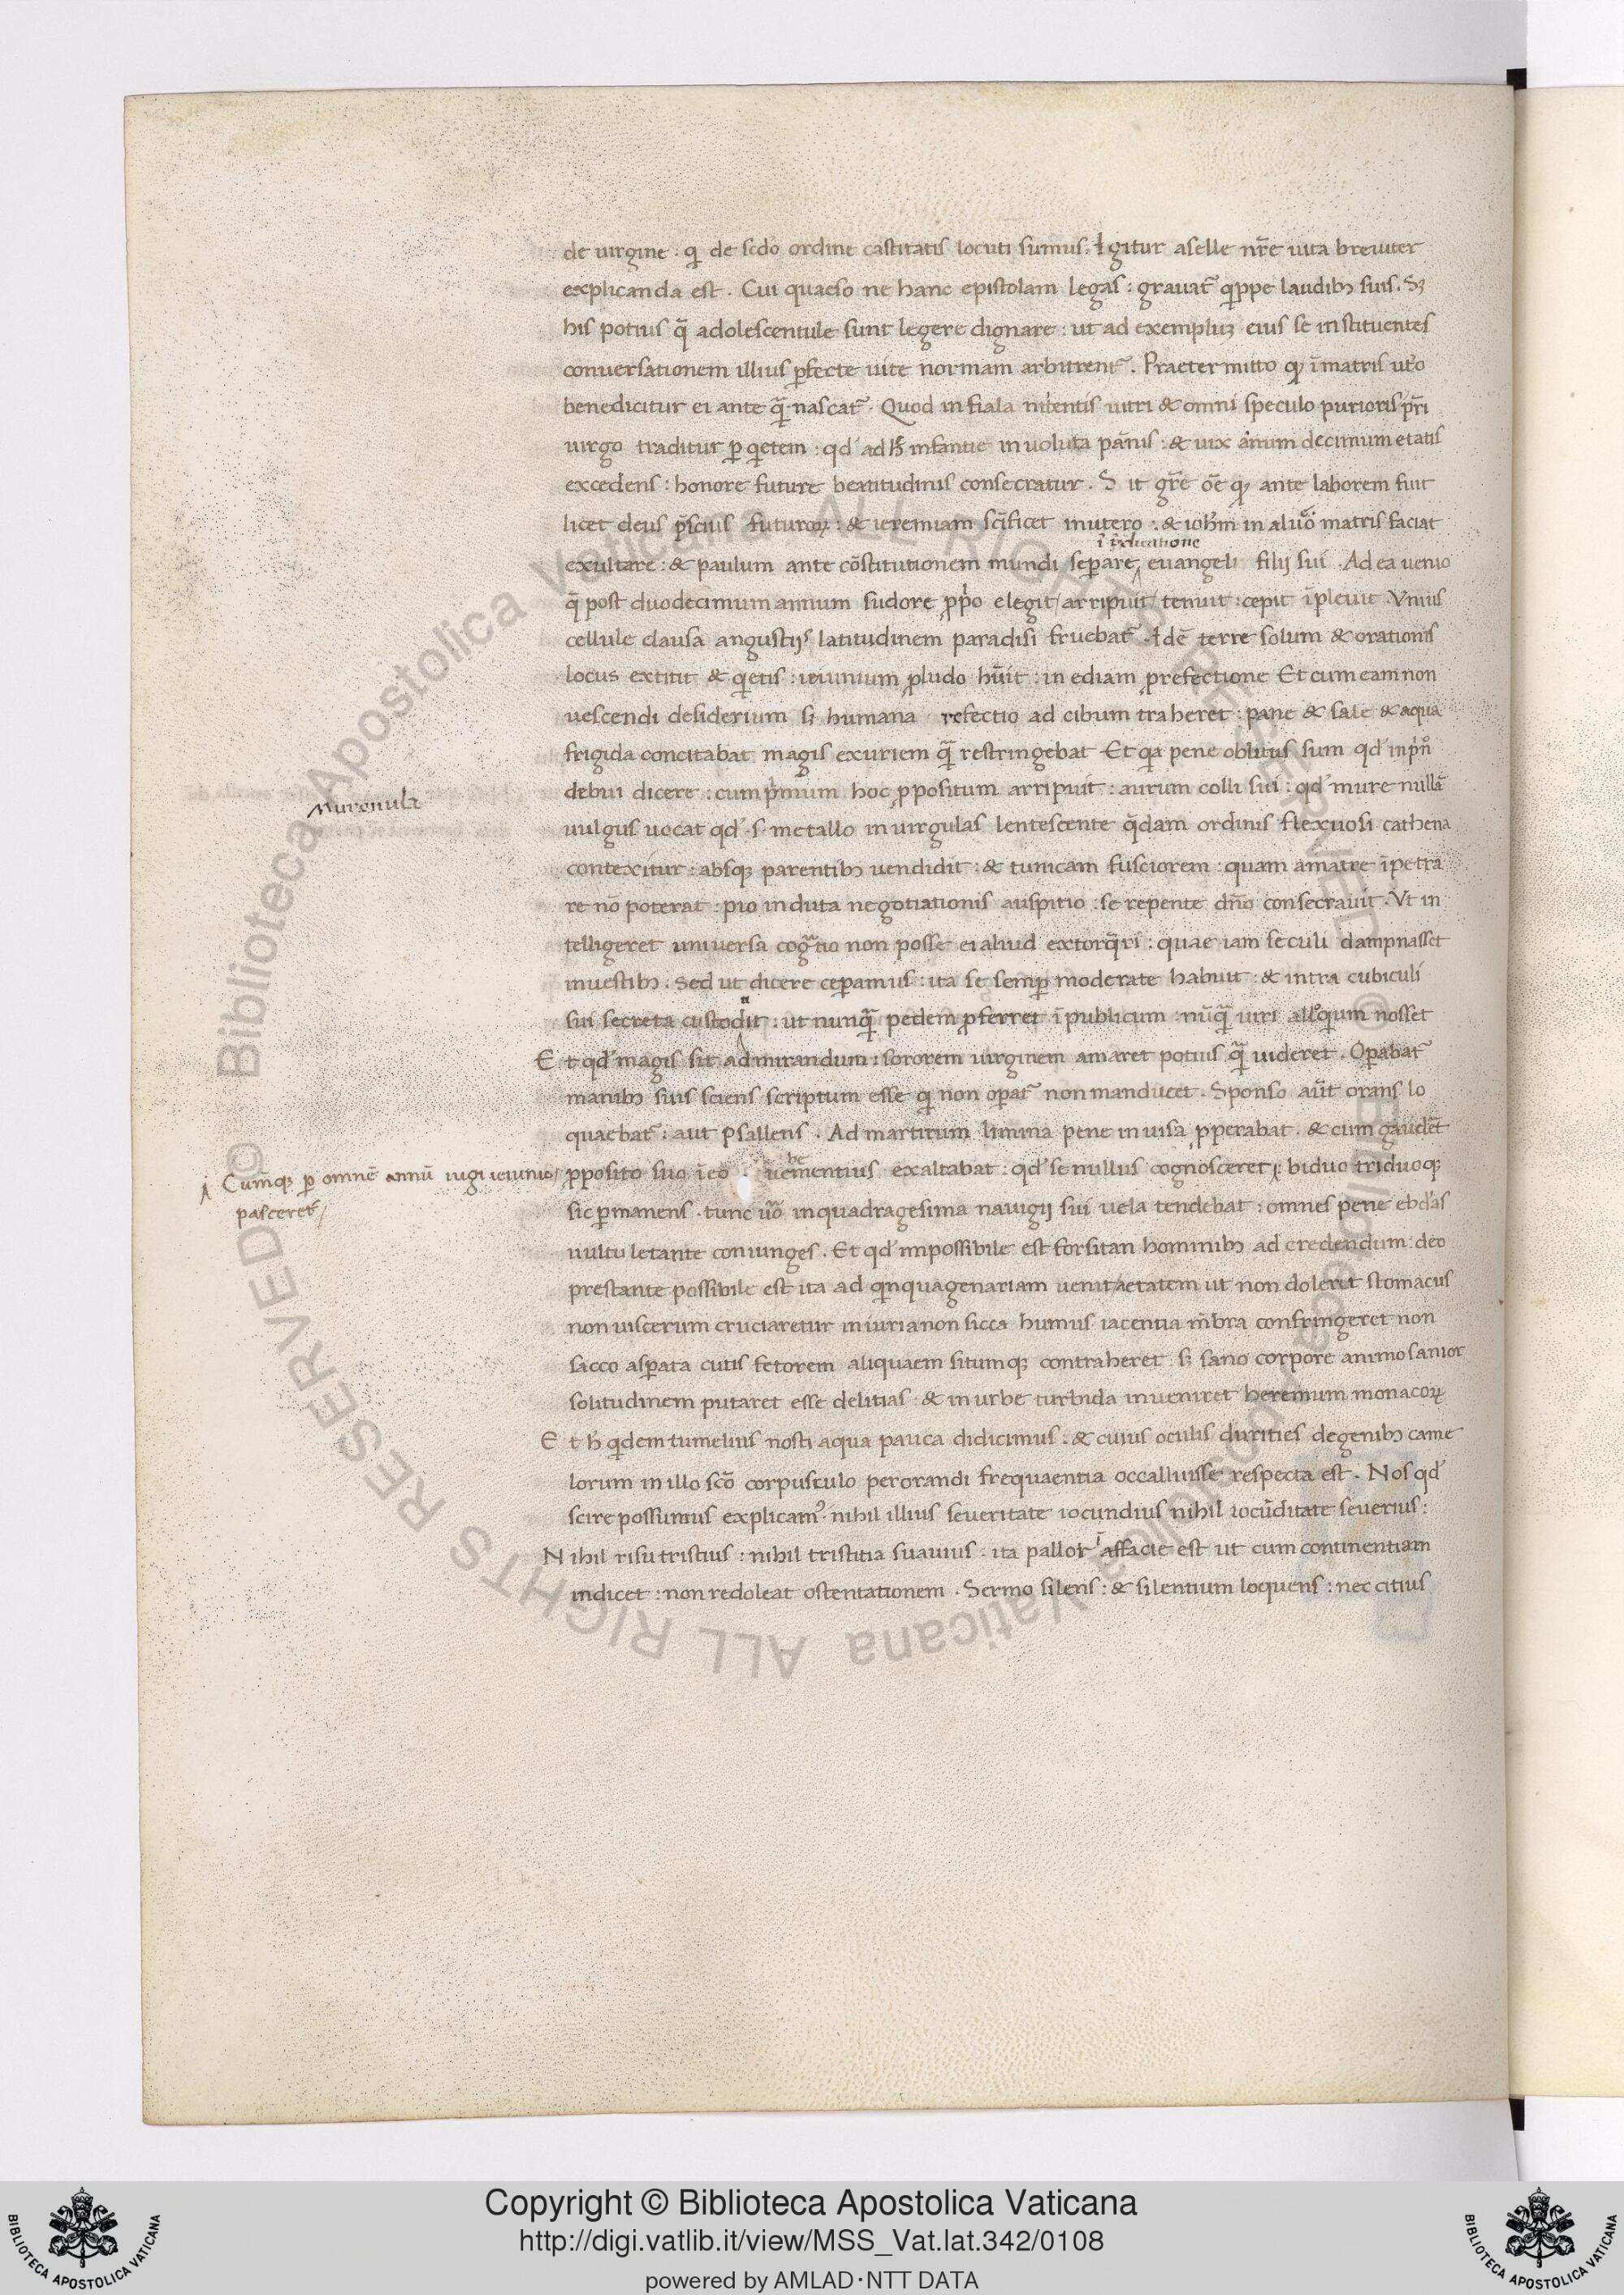 de uirgine . q̄ de sc̄do ordine castitatis locuti sumus . Igitur aselle nr̄e uita breuiter
explicanda est . Cui quaeso ne hanc epistolam legas : grauat̄ q̄ppe laudibꝫ suis . Sꝫ
his potius q̄ adolescentule sunt legere dignare : ut ad exempluꝫ eius se instituentes
conuersationem illius ꝑfecte uite normam arbitrent̄ . Praetermitto qꝫ ī matris ut̄o
benedicitur ei ante q̄ nascat̄ . Quod in fiala nitentis uitri & omni speculo purioris pr̄i
uirgo traditur ꝑ q̄etem : qd' ad h̄ infantie inuoluta pānis : & uix annum decimum etatis
excedens : honore future beatitudinis consecratur . Sit gr̄e ōe qꝫ ante laborem fuit
licet deus p̄scius futuroꝝ : & ieremiam sc̄ificet in utero : & ioh̄m in aluo matris faciat
ī p̄dicatione
exultare : & paulum ante cōstitutionem mundi seꝑare euangeli filij sui . Ad ea uenio
q̄ post duodecimum annum sudore ꝓp̄o elegit / arripuit / tenuit : cepit īpleuit . Vnius
cellule clausa angustijs latitudinem paradisi fruebat̄ . Idē terre solum & orationis
locus extitit & q̄etis : ieiunium ꝓ ludo h̄uit : inediam ꝓ refectione Et cum eam non
uescendi desiderium sꝫ humana refectio ad cibum traheret : pane & sale & aqua
frigida concitabat magis exuriem q̄ restringebat Et q̄a pene oblitus sum qd' in pn̄o
debui dicere : cum p̄mum hoc ꝓpositum arripuit : aurum colli sui : qd' murenullā
Murenula
uulgus uocat qd' . s . metallo in uirgulas lentescente q̄dam ordinis flexuosi cathena
contexitur : absqꝫ parentibꝫ uendidit : & tunicam fusciorem : quam a matre īpetra
re nō poterat : pio induta negotiationis auspitio : se repente dn̄o consecrauit . Vt in
telligeret uniuersa coḡtio non posse ei aliud extorq̄ri : quae iam seculi dampnasset
in uestibꝫ . Sed ut dicere ceꝑamus : ita se semꝑ moderate habuit : & intra cubiculi
sui secreta custodiit : ut nunq̄ pedem ꝓferret ī publicum nūq̄ uiri alloq̄um nosset
Et qd' magis sit admirandum : sororem uirginem amaret potius q̄ uideret . Oꝑabat̄
manibꝫ suis sciens scriptum esse q̄ non oꝑat̄ non manducet . Sponso aut̄ orans lo
quaebat̄ : aut psallens . Ad martirum limina pene inuisa ꝓperabat . & cum gauderet
ꝓposito suo ī eo uehementius exaltabat : qd' se nullus cognosceret . biduo triduoqꝫ
Cumqꝫ ꝑ omnē annū iugi ieiunio /
pasceret̄ /
sic ꝑmanens . tunc u̅o in quadragesima nauigij sui uela tendebat : omnes pene ebd'as
uultu letante coniunges . Et qd' impossibile est forsitan hominibꝫ ad credendum : deo
prestante possibile est ita ad q̄nquagenariam uenit / aetatem ut non doleret stomacus
non uiscerum cruciaretur iniuria non sicca humus iacentia m̄bra confringeret non
sacco asꝑata cutis fetorem aliquaem situmqꝫ contraheret sꝫ sano corpore animo sanior
solitudinem putaret esse delitias : & in urbe turbida inueniret heremum monacoꝝ
Et h̄ q̄dem tu melius nosti a qua pauca didicimus : & cuius oculis durities de genibꝫ came
lorum in illo sc̄o corpusculo per orandi frequaentia occalluisse respecta est . Nos qd'
scire possumus explicam᾽ . nihil illius seueritate iocundius nihil iocūditate seuerius :
Nihil risu tristius : nihil tristitia suauius . ita pallor ī affacie est ut cum continentiam
indicet : non redoleat ostentationem . Sermo silens : & silentium loquens : nec citius
Copyright © Biblioteca Apostolica Vaticana
http://digi.vatlib.it/view/MSS_Vat.lat.342/0108
powered by AMLAD·NTT DATA
BIBLIOTECA APOSTOLICA VATICANA
BIBLIOTECA APOSTOLICA VATICANA
© Biblioteca Apostolica Vaticana ALL RIGHTS RESERVED © Biblioteca Apostolica Vaticana ALL RIGHTS RESERVED